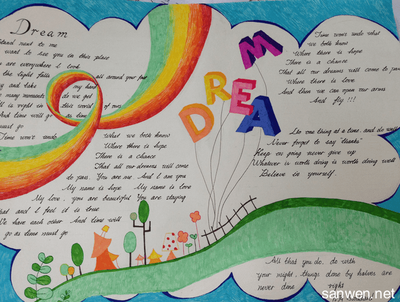 Dream
Stand next to me
want to see you in this place
are everywhere I look
the light falls all around your fac
and take my hand
many moments do we get
it's right in this world of ours
And time will go as time
must go
Time won't erode
What we both know
Where there is hope
There is a chance
That all our dreams will come
to pass You are me And I am you
My name is hope My name is love
My love, you are beautiful You are staying
that and I feel it is true
We have each other And time will
go as time must go
DREAM
Time won't erode what
we both know
Where there is hope
There is a chance
That all our dreams will come to pass
Where there is love
And then we can open our arms
And fly!!!
Do one thing at a time, and do well
Never forget to say "thanks"
Keep on going never give up
Whatever is worth doing is worth doing well
Believe in yourself
All that you do, do with
your might, things done by halves are
never done right
sanwen.net